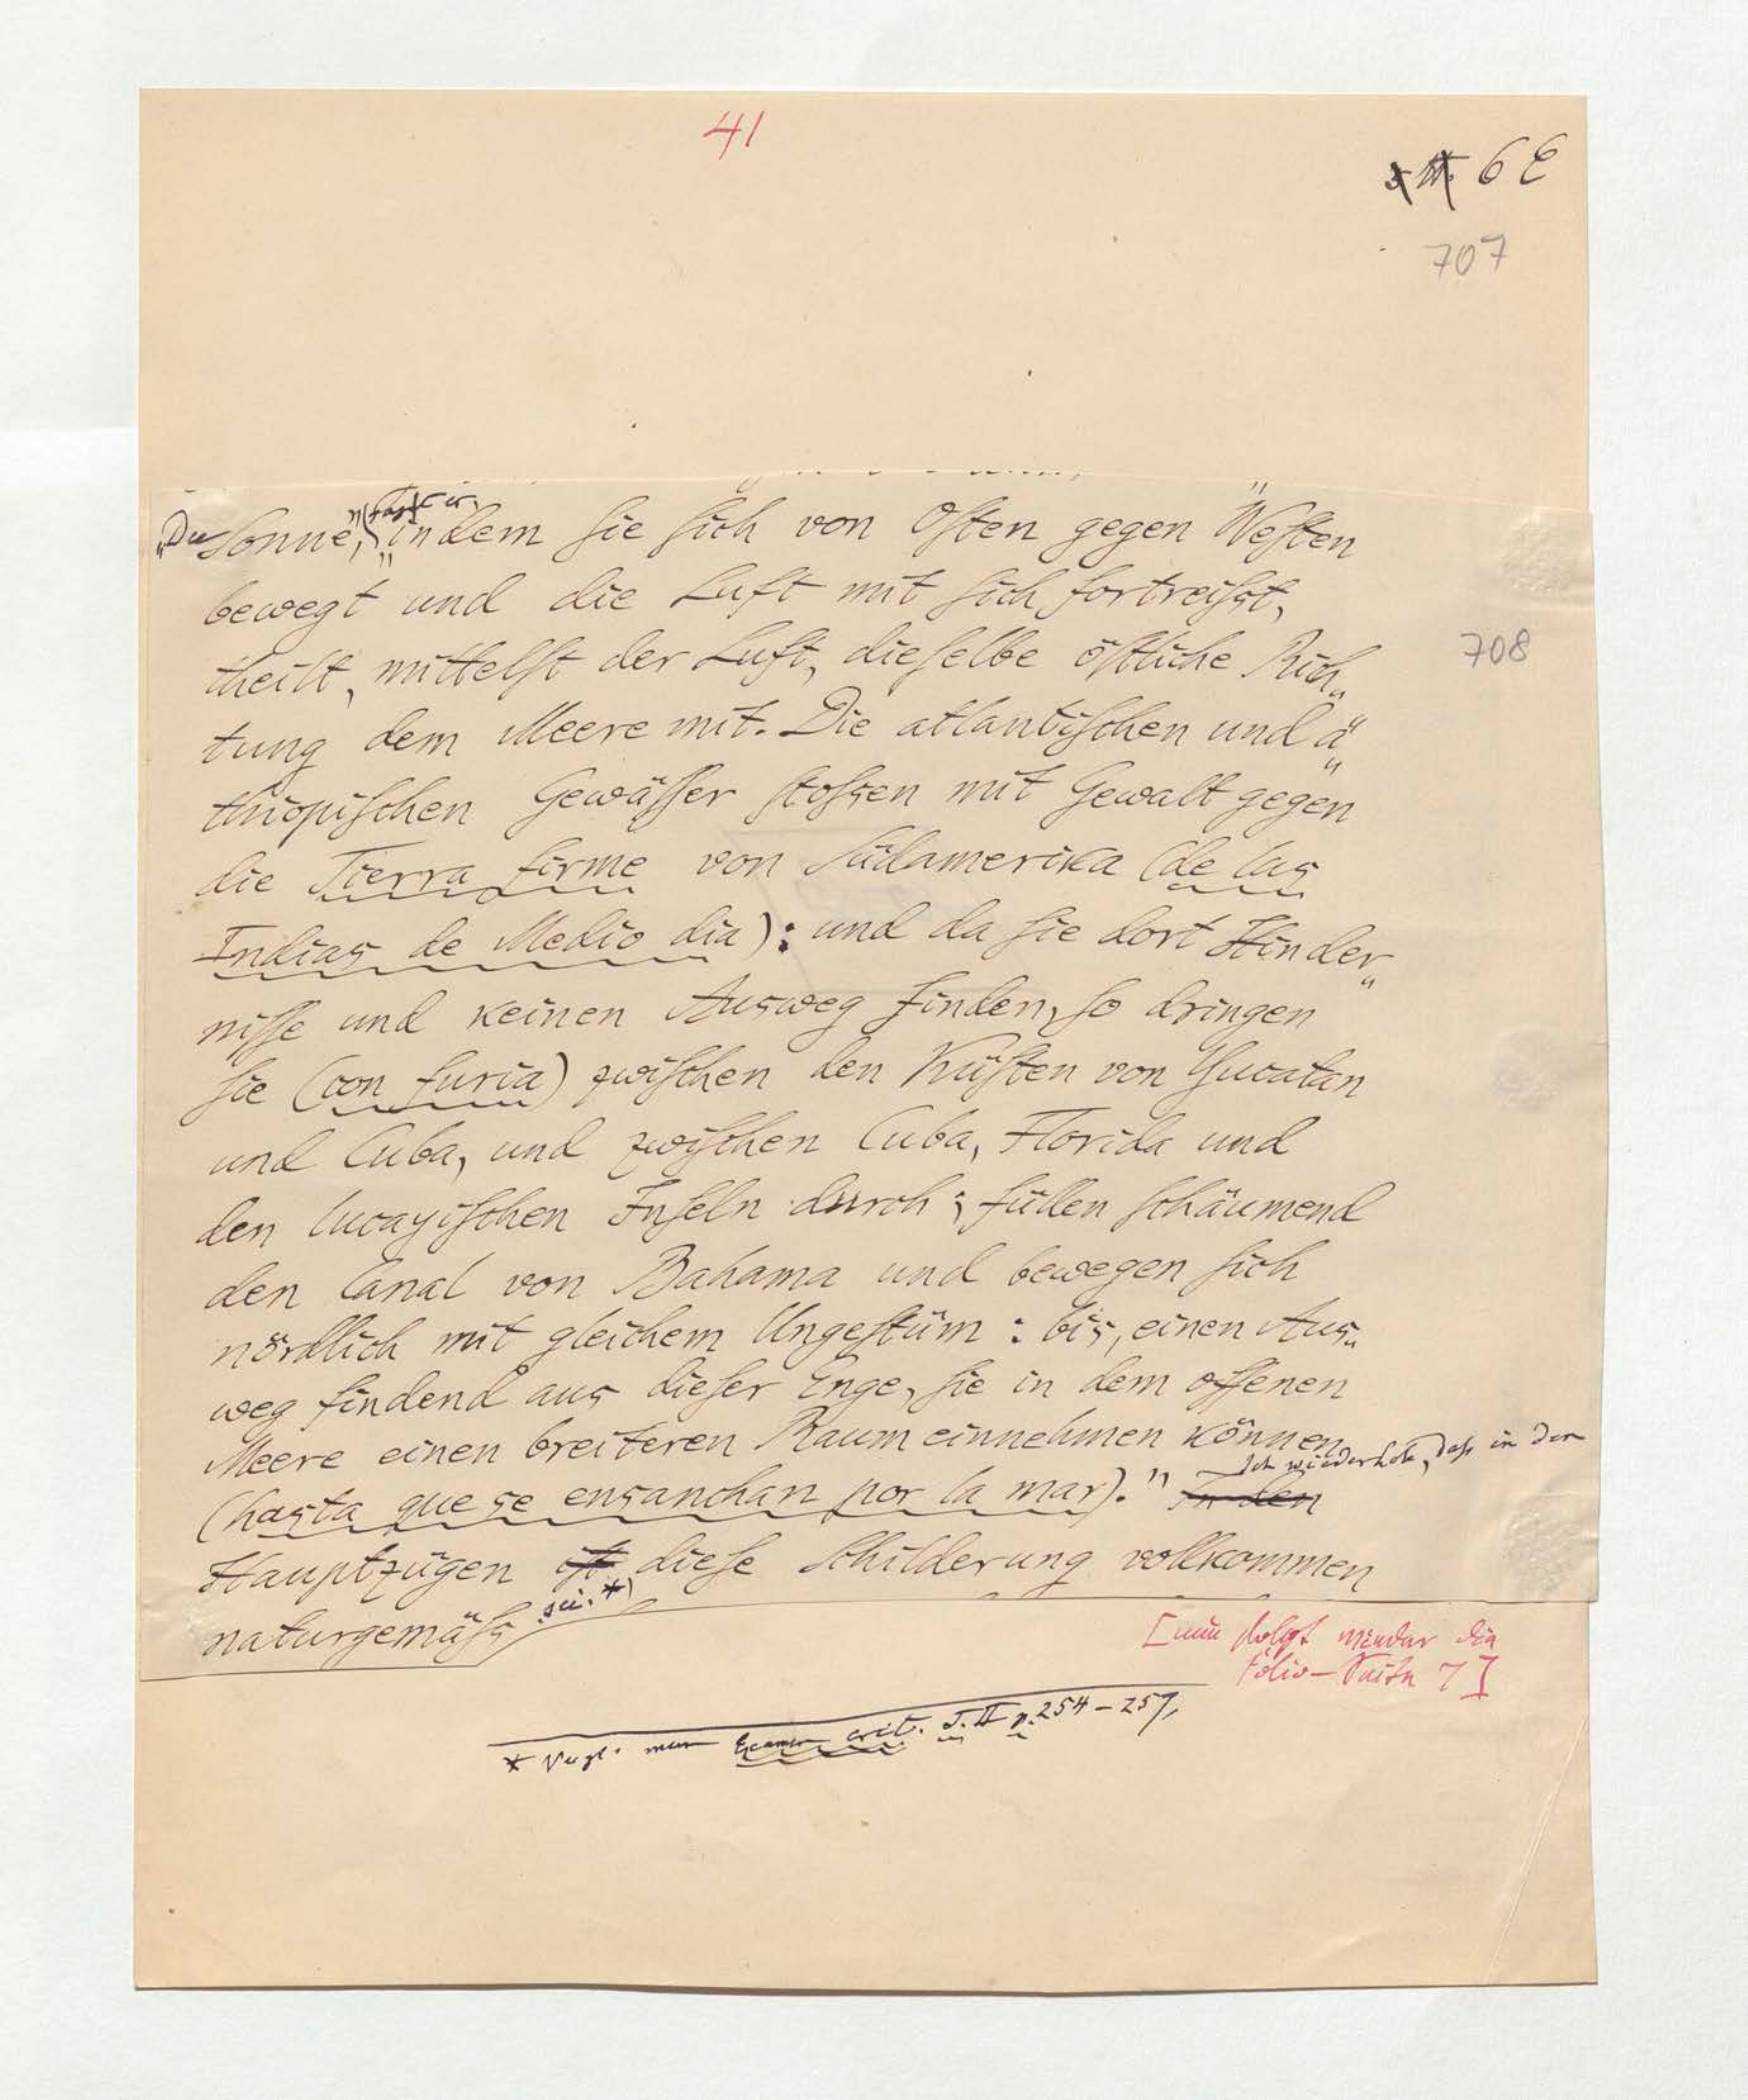 41
6 E
707
"Die Sonne," sagt er, "indem sie sich von Osten gegen Westen
bewegt und die Luft mit sich fortreißt,
theilt, mittelst der Luft, dieselbe östliche Rich„
tung dem Meere mit. Die atlantischen und ä„
thiopischen Gewässer stoßen mit Gewalt gegen
708
die Tierra firme von Südamerika (de las
Indias de Medio dia): und da sie dort Hinder„
nisse und keinen Ausweg finden, so dringen
sie (con furia) zwischen den Küsten von Yucatan
und Cuba, und zwischen Cuba, Florida und
den lucayischen Inseln durch; füllen schäumend
den Canal von Bahama und bewegen sich
nördlich mit gleichem Ungestüm: bis, einen Aus„
weg findend aus dieser Enge, sie in dem offenen
Meere einen breiteren Raum einnehmen können
(hasta que se ensanchan por la mar)." In den Ich wiederhole, daß in den
Hauptzügen ist diese Schilderung vollkommen
naturgemäß sei.*)
[nun folgt wieder die
Folio-Seite 7]
* Vergl. mein Examen crit. T. II p. 254-257,